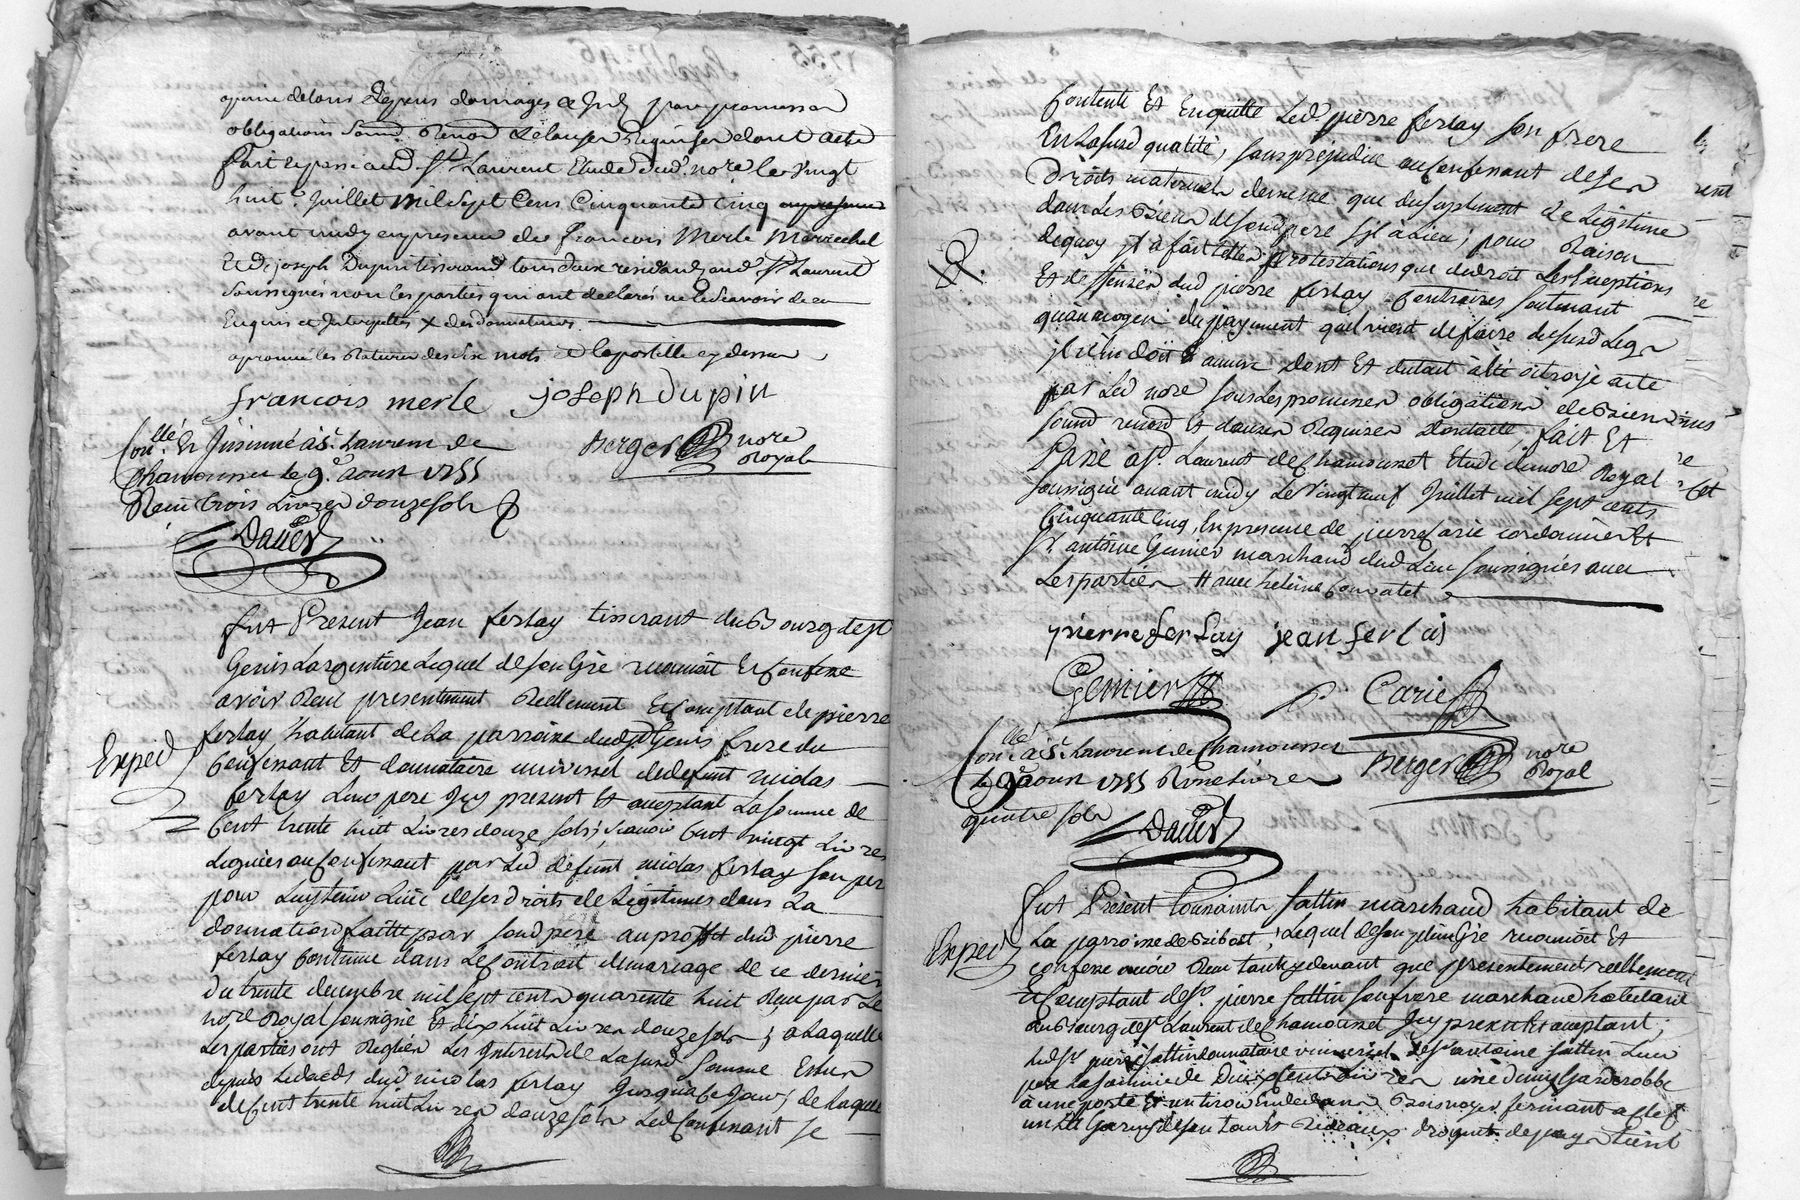 obligations soumi. Renon & clauses Requises dont acte
fait et passé aud. St. Laurent Etude dud. no.re le vingt
huit.e Juillet mil sept Cens Cinquante Cinq
avant midy en presence de françois Merle Maréchal
Et de joseph Dupin tisserand tous deux residants aud. St. Laurent
soussignés non les parties qui ont declarés ne le scavoir de ce
Enquis et Interpellés
aprouvé les Ratures des six mots et l'apostille cy dessus
francois merle joseph dupin
Con.llé Et Insinué à St. Laurent de
Chamousset le 9. aoust 1755
Reçu trois Livres douze sols
Berger no.re Royal
Daver
fut Present Jean ferlay tisserant du Bourg de St
Genis Largentiere Lequel de son Gré reconnoit et Confesse
avoir Reçu presentement Réellement et Comptant de pierre
ferlay habitant de La parroisse dud. St. Genis frere du
Exped
Confessant Et donnataire universel de defunt nicolas
ferlay Leur pere Icy present Et acceptant La somme de
Cent trente huit Livres douze sols; scavoir Cent vingt Livres
Leguées au confessant par Led. défunt nicolas ferlay son pere
pour Luy tenir Lieu de ses droits de Legitimes dans La
donnation faitte par sond. pere au proffit dud. pierre
ferlay Contenue dans Le Contrat de mariage de ce dernier
du trente decembre mil sept cents quarente huit Reçu par Le
no.re Royal soussigné Et dix huit Livres douze sols; a Laquelle
Les parties ont Reglés Les Interests de Lasusd. somme Echus
depuis Le deceds dud. nicolas ferlay Jusqu'a ce Jour; de Laquelle
de Cent trente huit Livres douze sols Led. Confessant se
Contente Et Enquitte Led. pierre ferlay son frere
En Lasusd. qualité, sans préjudice au Confessant de ses
Droits maternels de même que du suplement de Legitime
dans Les Biens de sond. pere s'il a Lieu; pour Raison
dequoy il a fait telles protestations que de droit Les Exeptions
Et deffenses dud. pierre ferlay Contraires soutenant
qu'au moyen du payment qu'il vient de faire du susd. Legs
il n'en doit aucun Dont Et du tout a été octroyé acte
par Led. no.re sous Les promesses obligations de Biens
soumi. renon. Et clauses Requises Dont acte, fait Et
Passé a St. Laurent de Chamousset Etude du no.re Royal
soussigné avant midy Le vingt neuf Juillet mil sept cents
Cinquante Cinq, En presence de pierre Carie cordonnier Et
Sr. antoine Genier marchand dud. Lieu soussignés avec
Les parties
pierre ferlay jean ferlai
Genier Carie
Con.llé à St. Laurent de Chamousset
le 9 aoust 1755 Reçu une Livre
quatre sols
Berger no.re Royal
Daver
fut Présent tousaints fattin marchand habitant de
La parroisse de Bibost, Lequel de son plein Gré reconnoit Et
Exped
confesse avoir Reçu tant cydevant que presentement réellement
Et Comptant de Sr. pierre fattin son frere marchand habitant
au Bourg de St. Laurent de Chamousset Icy present Et acceptant;
Led. Sr. pierre fattin donnataire universel de Sr. antoine fattin Leur
pere La somme de Deux cents Livres une demy Garderobbe
à une porte Et un tiroir En dedans Bois noyer fermant a clef
un Lit Garny de son tour Et Rideaux